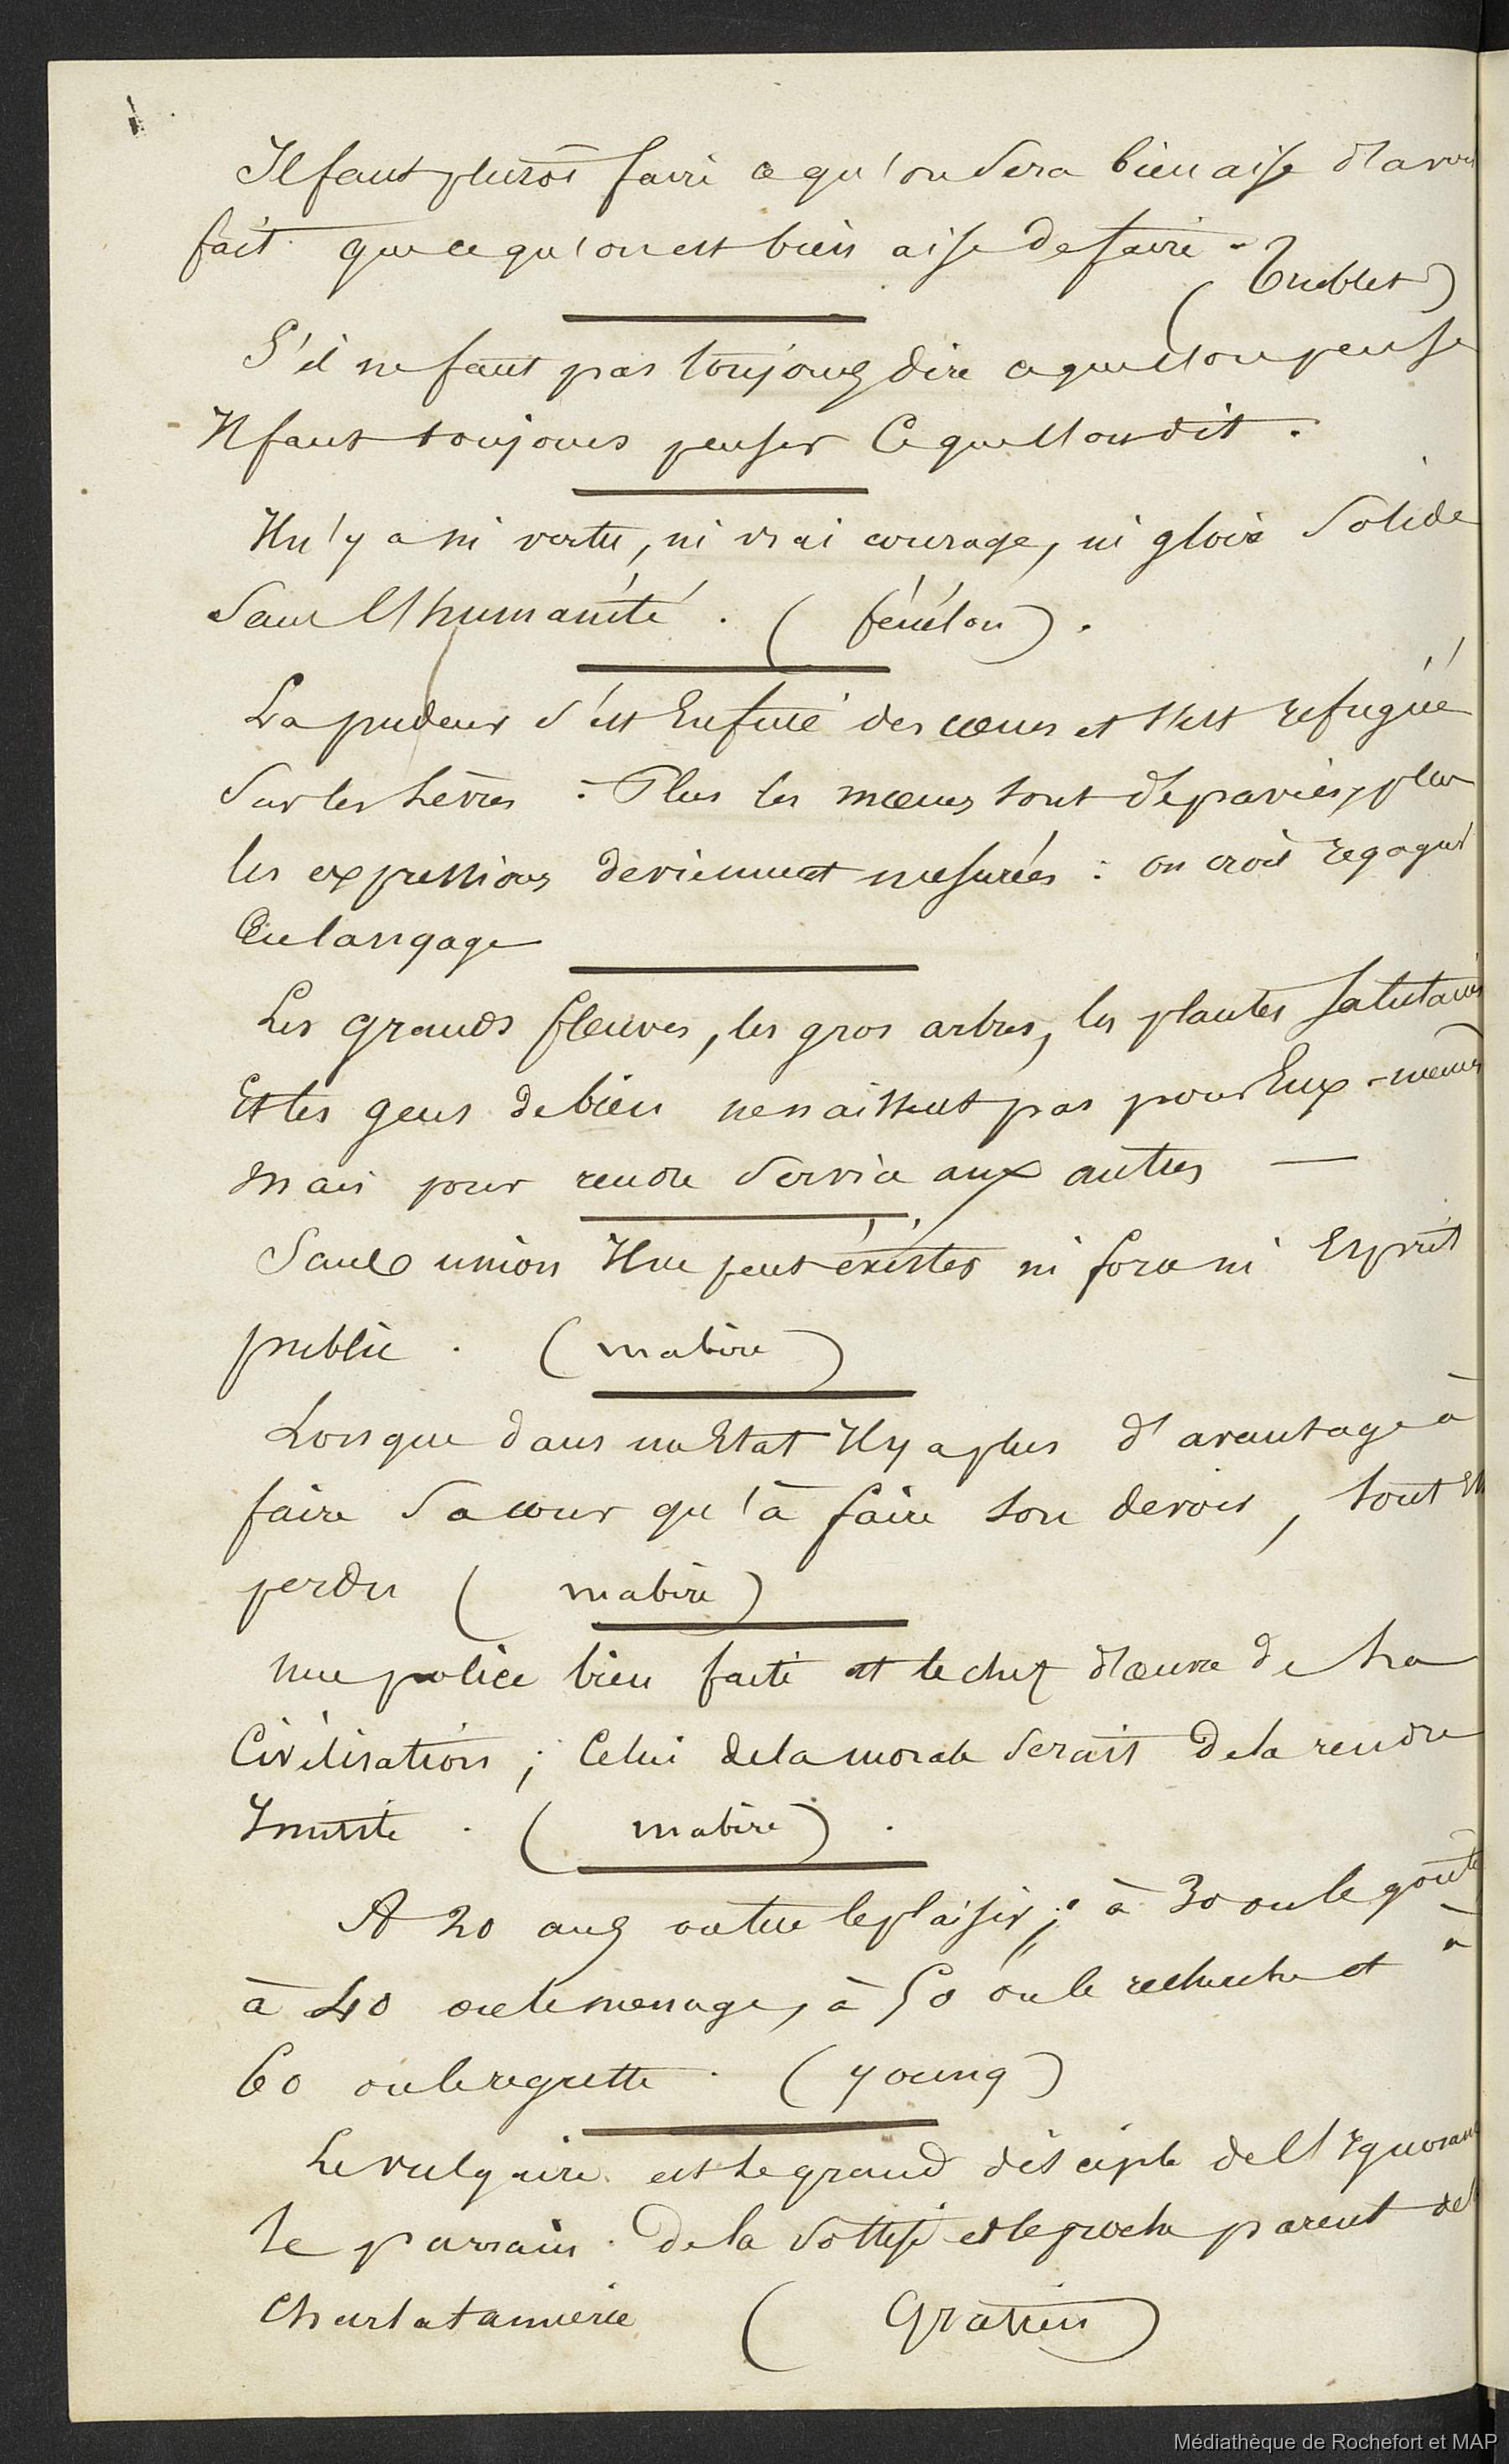 Il faut plutôt faire ce qu'on sera bien aise d'avoir
fait que ce qu'on est bien aise de faire -
(Trublet)
S'il ne faut pas toujours dire ce que l'on pense
Il faut toujours penser Ce que l'on dit .
Il n'y a ni vertu, ni vrai courage, ni gloire Solide
Sans l'humanité . ( fénélon ) .
La pudeur s'est Enfuie des cœurs et s'est refugiée
Sur les lèvres : Plus les mœurs sont dépravées, plus
les expressions deviennent mesurées : on croit regagner
En langage
Les grands fleuves, les gros arbres, les plantes Salutaires
Et les gens de bien ne naissent pas pour Eux-mêmes
mais pour rendre Service aux autres —
Sans union Il ne peut éxister ni force ni Esprit
public . (mabire)
Lorsque dans un Etat Il y a plus d'avantage à
faire Sa cour qu'à faire son devoir, tout est
perdu ( mabire )
une police bien faite est le chef d'œuvre de La
Civilisation ; Celui de la morale Serait De la rendre
Inutile . ( mabire ) .
A 20 ans on tue le plaisir ; à 30 on le goute
à 40 on le menage, à 50 on le recherche et à
60 on le regrette . ( young )
Le vulgaire est le grand disciple de l'Ignorance
Le parrain De la Sottise et le proche parent de la
Charlatannerie ( Gratien )
Médiathèque de Rochefort et MAP